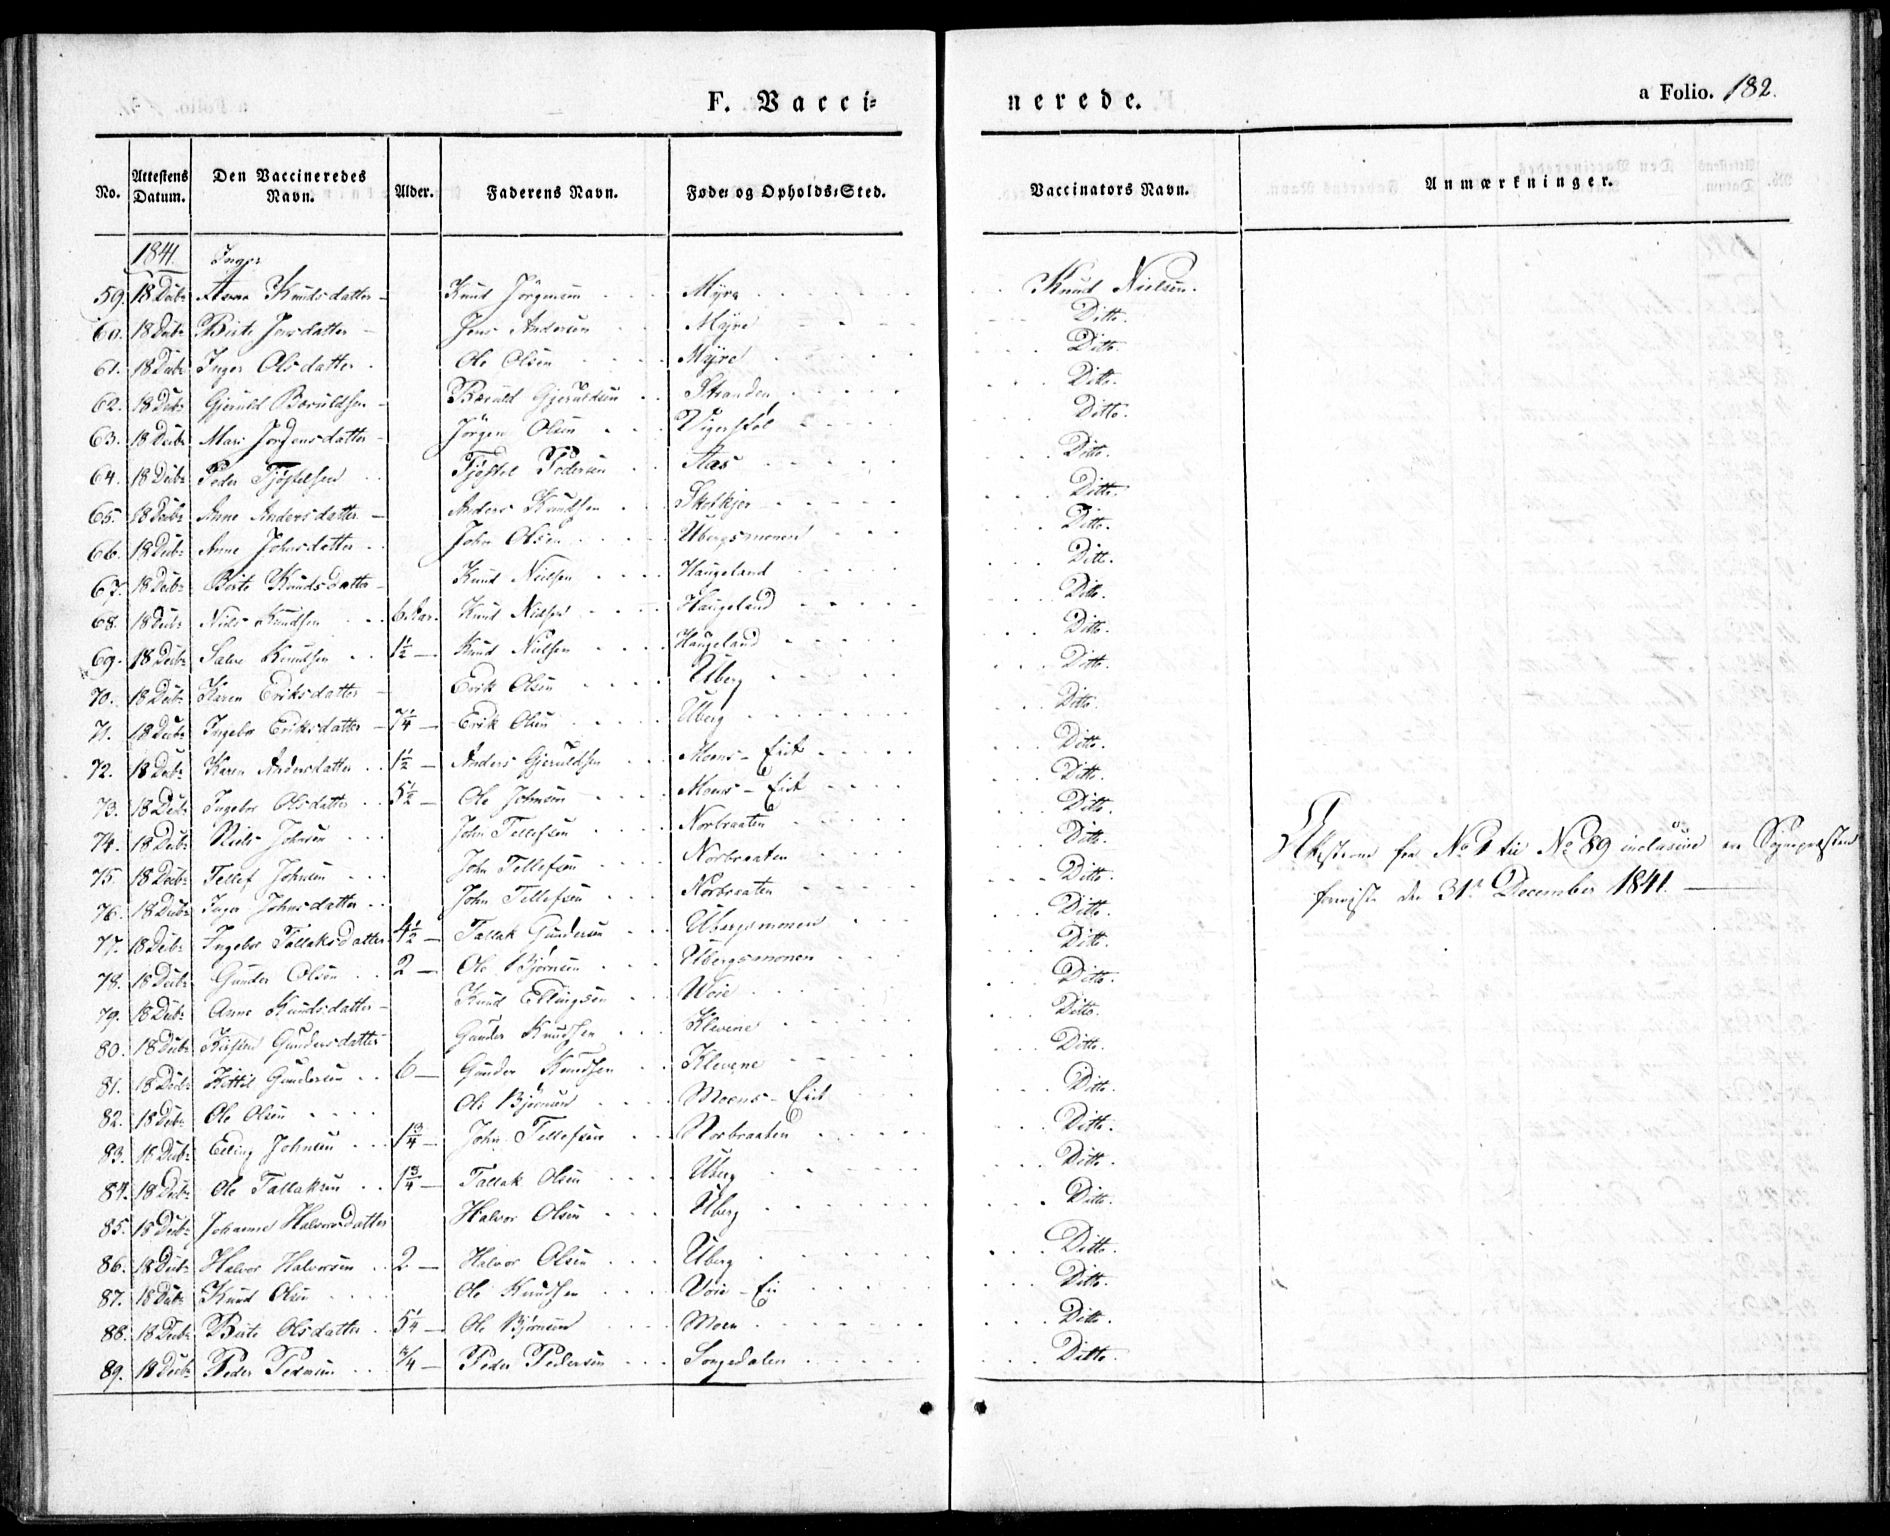 F. Vacci=
nerede.
a Folio. 182.
No. Attestens Datum. Den Vaccineredes Navn. Alder. Faderens Navn. Føde- og Opholds-Sted. Vaccinators Navn. Anmærkninger.
1841. Inger
59. 18 Decbr Knudsdatter - Knud Jörgensen Myre Knud Nielsen.
60. 18 Decbr Birte Jensdatter - Jens Andersen Myre Ditto.
61. 18 Decbr Inger Olsdatter Ole Olsen Myre Ditto.
62. 18 Decbr Gjeruld Boruldsen - Boruld Gjeruldsen Stranden Ditto.
63. 18 Decbr Mari Jorgensdatter - Jörgen Olsen Vigerstøl Ditto.
64. 18 Decbr Peder Tjöstelsen Tjöstel Pedersen Aas Ditto.
65. 18 Decbr Anne Andersdatter - Anders Knudsen Skolkjer Ditto.
66. 18 Decbr Anne Johnsdatter John Olsen Ubergsmonen Ditto.
67. 18 Decbr Birte Knudsdatter - Knud Nielsen Haugeland Ditto.
68. 18 Decbr Niels Knudsen 6 Aar. Knud Nielsen Haugeland Ditto.
69. 18 Decbr Salve Knudsen 1½ - Knud Nielsen Haugeland Ditto.
70. 18 Decbr Karen Eriksdatter - Erik Olsen Uberg Ditto.
71. 18 Decbr Ingebor Eriksdatter - Erik Olsen Uberg Ditto.
72. 18 Decbr Karen Andersdatter 1½ - Anders Gjeruldsen Moens - Eiet Ditto.
73. 18 Decbr Ingebor Olsdatter 5½ - Ole Johnsen Moens - Eiet Ditto.
74. 18 Decbr Niels Johnsen John Tellefsen Norbraaten Ditto.
75. 18 Decbr Tellef Johnsen John Tellefsen Norbraaten Ditto.
76. 18 Decbr Inger Johnsdatter John Tellefsen Norbraaten Ditto.
77. 18 Decbr Ingebor Tallaksdatter 4½ - Tallak Gundersen Ubergsmonen Ditto.
78. 18 Decbr Gunder Olsen 2 - Ole Björnsen Ubergsmonen Ditto.
79. 18 Decbr Anne Knudsdatter - Knud Ellingsen Woie Ditto.
80. 18 Decbr Kirsten Gundersdatter Gunder Knudsen Klevene Ditto.
81. 18 Decbr Kittil Gundersen 6 - Gunder Knudsen Klevene Ditto.
82. 18 Decbr Ole Olsen Ole Bjørnsen Moens - Eiet Ditto.
83. 18 Decbr Elling Johnsen 1¾ - John Tellefsen Norbraaten Ditto.
84. 18 Decbr Ole Tallaksen 1¾ - Tallak Olsen Uberg Ditto.
85. 18 Decbr Johanne Halvorsdatter Halvor Olsen Uberg Ditto.
86. 18 Decbr Halvor Halvorsen 2 - Halvor Olsen Uberg Ditto.
87. 18 Decbr Knud Olsen Ole Knudsen Voie - Ei Ditto.
88. 18 Decbr Birte Olsdatter 5¼ - Ole Bjørnsen Moen Ditto.
89. 18 Decbr Peder Pedersen ¾ - Peder Pedersen Songedalen Ditto.
Attesterne fra No 1 til No 89 inclusive ere Sognepræsten
foreviste den 31te December 1841.